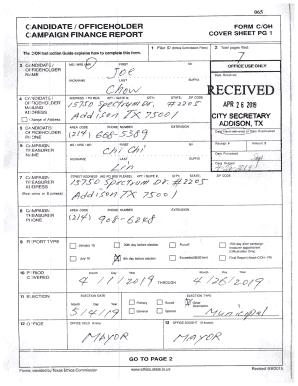 065
CANDIDATE / OFFICEHOLDER
CAMPAIGN FINANCE REPORT
FORM C/OH
COVER SHEET PG 1
The C/OH Instruction Guide explains how to complete this form.
1 Filer ID (Ethics Commission Filers)
2 Total pages filed:
7
3 CANDIDATE /
OFFICEHOLDER
NAME
MS / MRS / MR
FIRST
MI
Joe
NICKNAME
LAST
SUFFIX
Chow
OFFICE USE ONLY
Date Received
RECEIVED
APR 26 2019
CITY SECRETARY
ADDISON, TX
4 CANDIDATE /
OFFICEHOLDER
MAILING
ADDRESS
Change of Address
ADDRESS / PO BOX;
APT / SUITE #;
CITY;
STATE;
ZIP CODE
15750 Spectrum Dr. #2205
Addison TX 75001
5 CANDIDATE/
OFFICEHOLDER
PHONE
AREA CODE
PHONE NUMBER
EXTENSION
(214) 668-5389
Date Hand-delivered or Date Postmarked
6 CAMPAIGN
TREASURER
NAME
MS / MRS / MR
FIRST
MI
Chi Chi
NICKNAME
LAST
SUFFIX
Lin
Date Processed
Date Imaged
7 CAMPAIGN
TREASURER
ADDRESS
(Residence or Business)
STREET ADDRESS (NO PO BOX PLEASE);
APT / SUITE #;
CITY;
STATE;
ZIP CODE
15750 Spectrum Dr. #2205
Addison TX 75001
8 CAMPAIGN
TREASURER
PHONE
AREA CODE
PHONE NUMBER
EXTENSION
(214) 908-6248
9 REPORT TYPE
January 15
30th day before election
Runoff
15th day after campaign
treasurer appointment
(Officeholder Only)
July 15
8th day before election
Exceeded $500 limit
Final Report (Attach C/OH - FR)
10 PERIOD
COVERED
Month Day Year
4/1/2019
THROUGH
Month Day Year
4/26/2019
11 ELECTION
ELECTION DATE
Month Day Year
5/4/2019
ELECTION TYPE
Primary
Runoff
Other
Description
General
Special
Municipal
12 OFFICE
OFFICE HELD (if any)
MAYOR
13 OFFICE SOUGHT (if known)
MAYOR
GO TO PAGE 2
Forms provided by Texas Ethics Commission
www.ethics.state.tx.us
Revised 9/8/2015